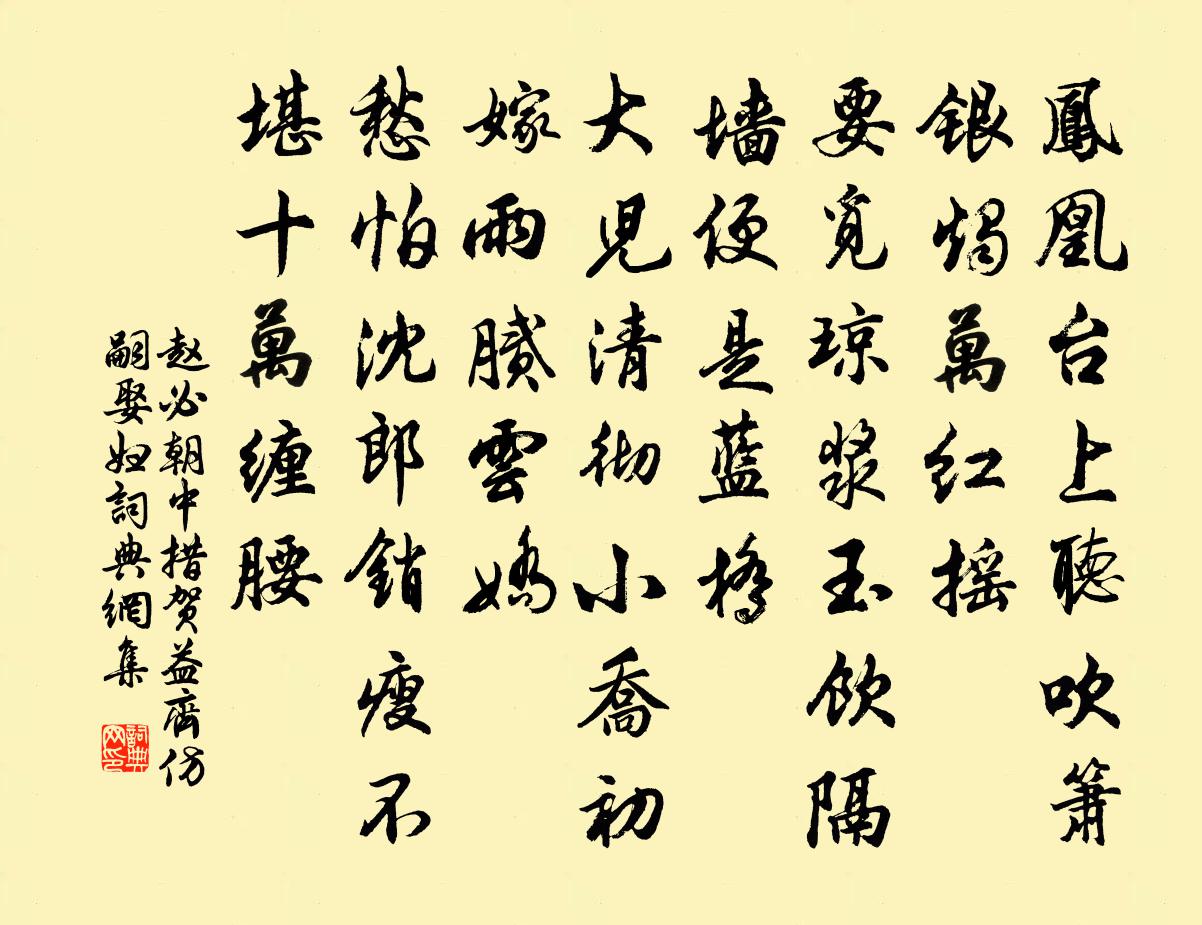 鳳凰台上聽吹簫
銀燭萬紅摇
要覓琼漿玉飲隔
墻便是藍橋
大兒清彻小喬初
嫁雨膩雲嬌
愁怕沈郎銷瘦不
堪十萬缠腰
赵必朝中措贺益齋仿
嗣娶妇詞典網集
詞典
网印